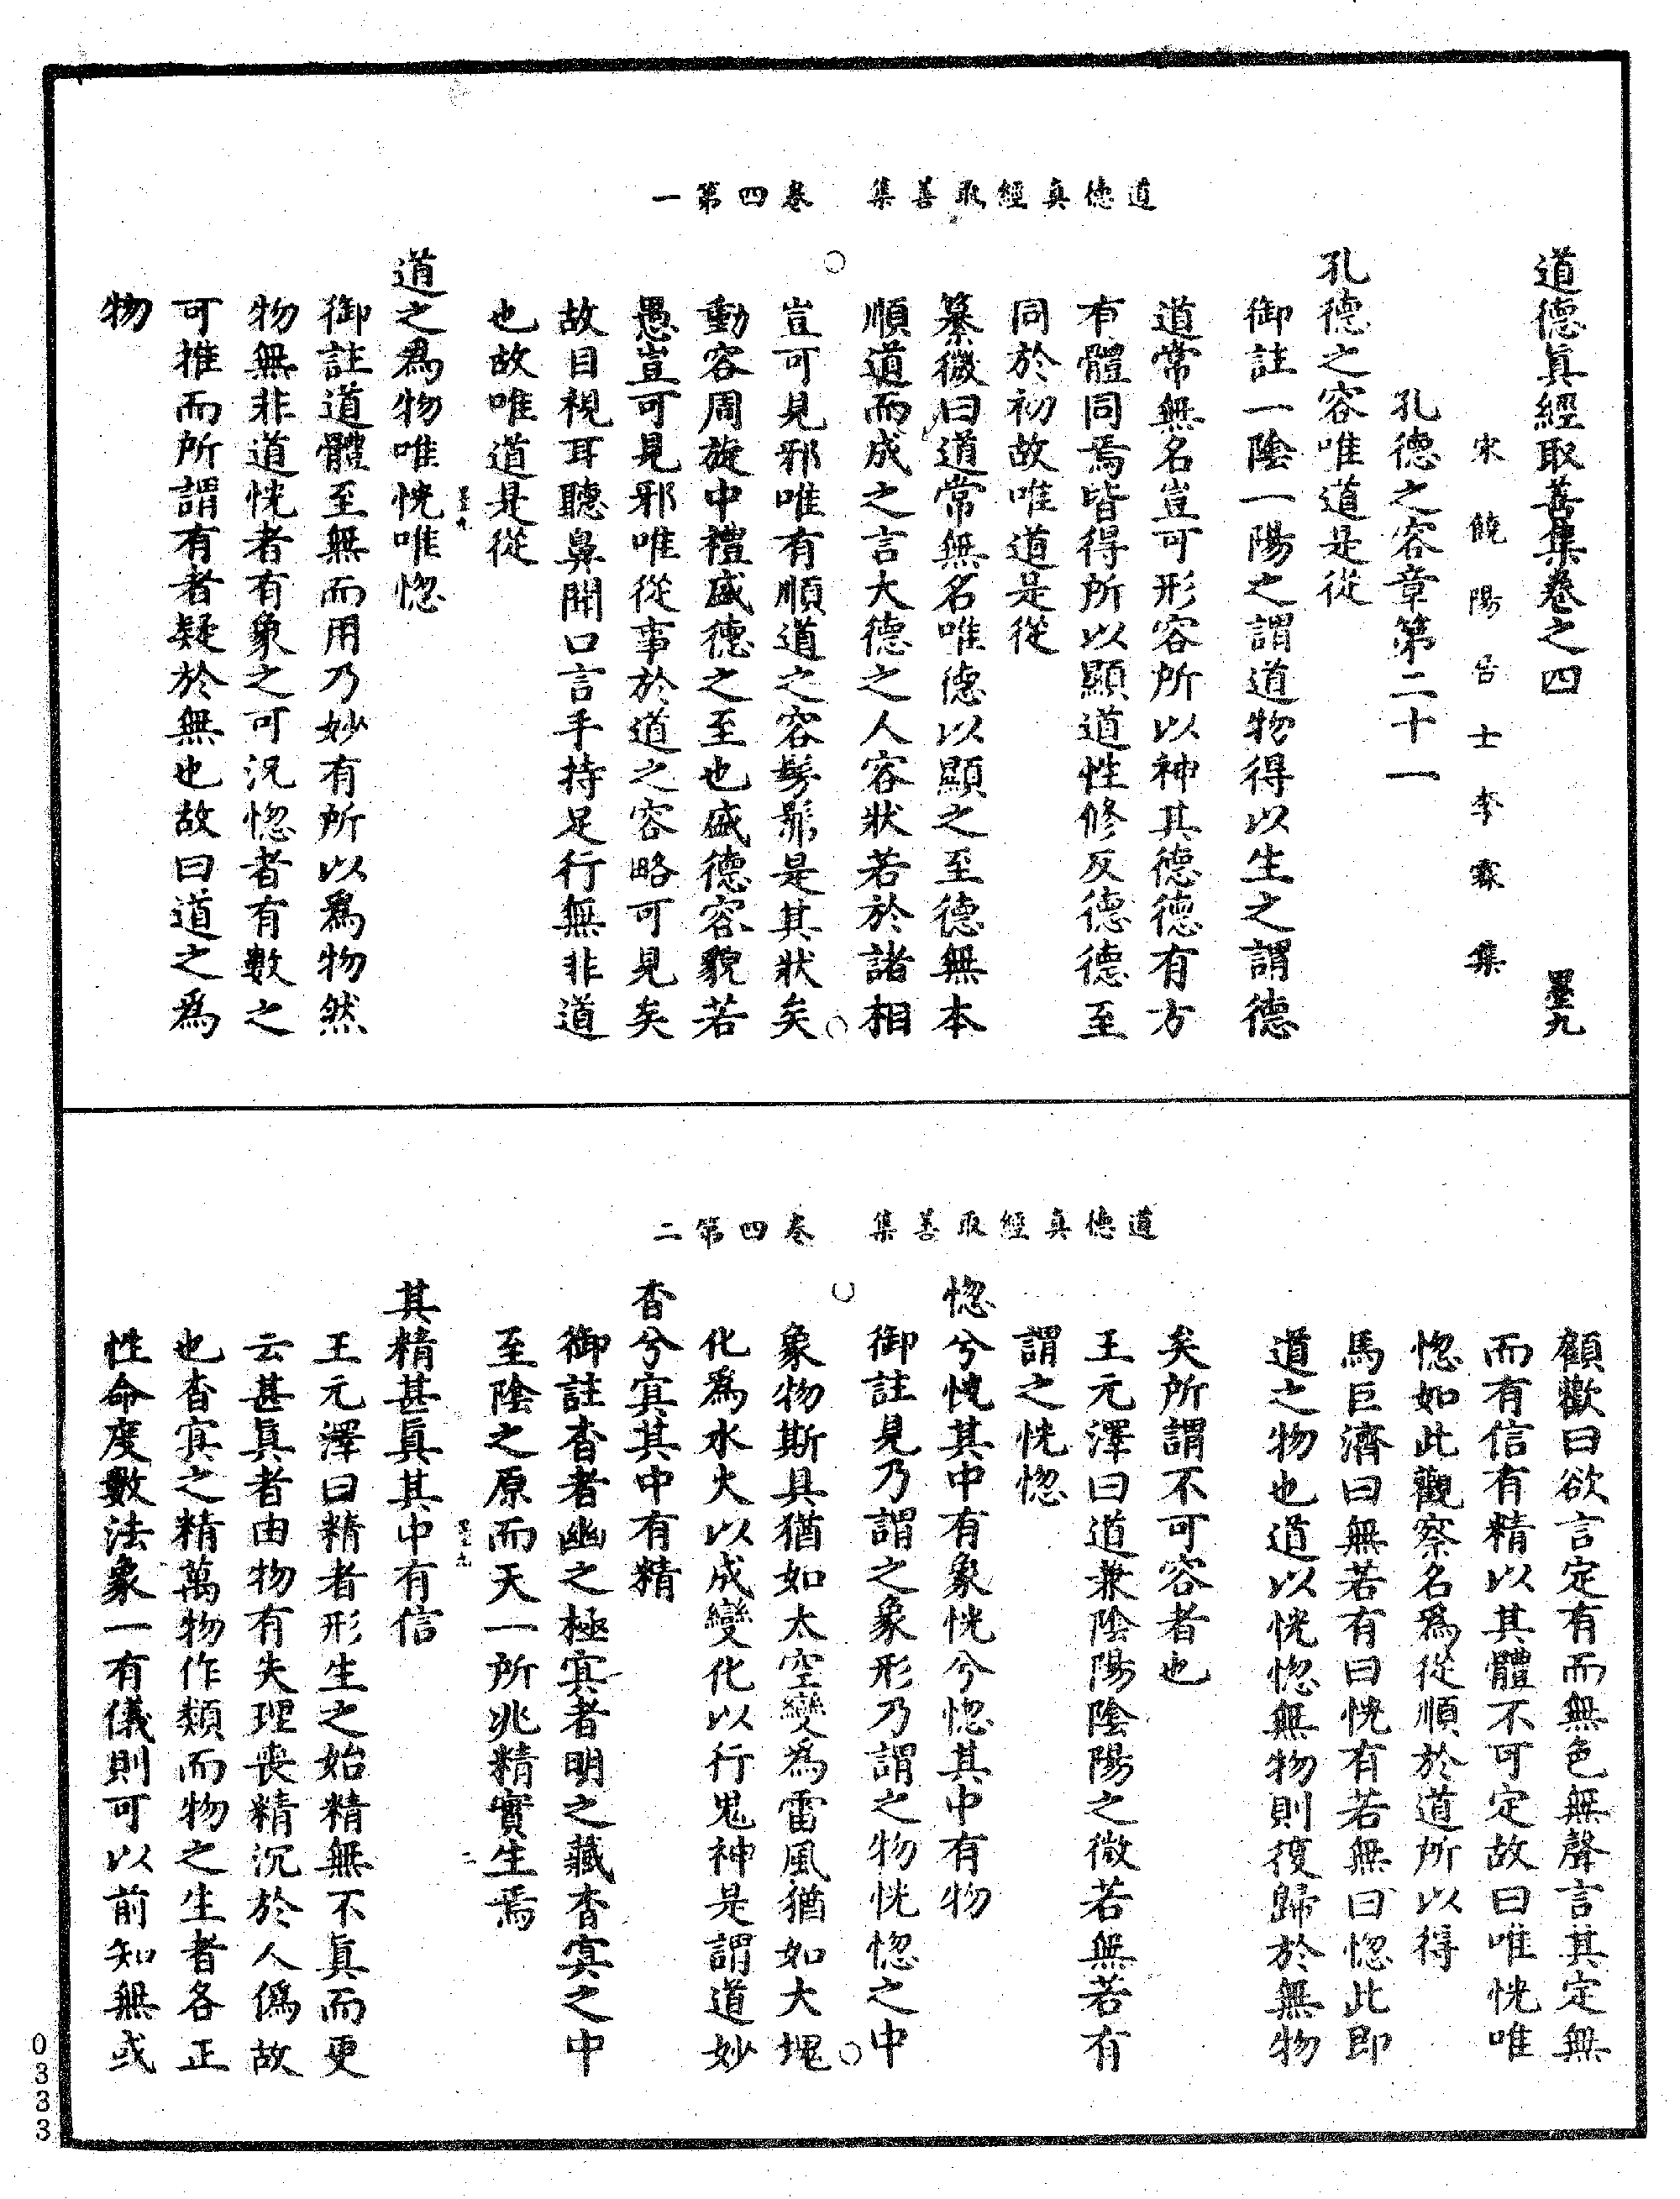 道德眞經取善集　卷四第一
道德眞經取善集卷之四　墨九
宋饒陽居士李霖集
孔德之容章第二十一
孔德之容唯道是從
御註一陰一陽之謂道物得以生之謂德
道常無名豈可形容所以神其德德有方
有體同焉皆得所以顯道性修反德德至
同於初故唯道是從
纂微曰道常無名唯德以顯之至德無本
順道而成之言大德之人容狀若於諸相
豈可見邪唯有順道之容髣髴是其狀矣
動容周旋中禮盛德之至也盛德容貌若
愚豈可見邪唯從事於道之容略可見矣
故目視耳聽鼻聞口言手持足行無非道
也故唯道是從
墨九
道之爲物唯恍唯惚
御註道體至無而用乃妙有所以爲物然
物無非道恍者有象之可況惚者有數之
可推而所謂有者疑於無也故曰道之爲
物
道德眞經取善集　卷四第二
顧歡曰欲言定有而無色無聲言其定無
而有信有精以其體不可定故曰唯恍唯
惚如此觀察名爲從順於道所以得
馬巨濟曰無若有曰恍有若無曰惚此即
道之物也道以恍惚無物則復歸於無物
矣所謂不可容者也
王元澤曰道兼陰陽陰陽之微若無若有
謂之恍惚
惚兮恍其中有象恍兮惚其中有物
御註見乃謂之象形乃謂之物恍惚之中
象物斯具猶如太空變爲雷風猶如大塊
化爲水火以成變化以行鬼神是謂道妙
杳兮冥其中有精
御註杳者幽之極冥者明之藏杳冥之中
至陰之原而天一所兆精實生焉
墨九　二
其精甚眞其中有信
王元澤曰精者形生之始精無不眞而更
云甚眞者由物有失理喪精沉於人僞故
也杳冥之精萬物作類而物之生者各正
性命度數法象一有儀則可以前知無或
0333